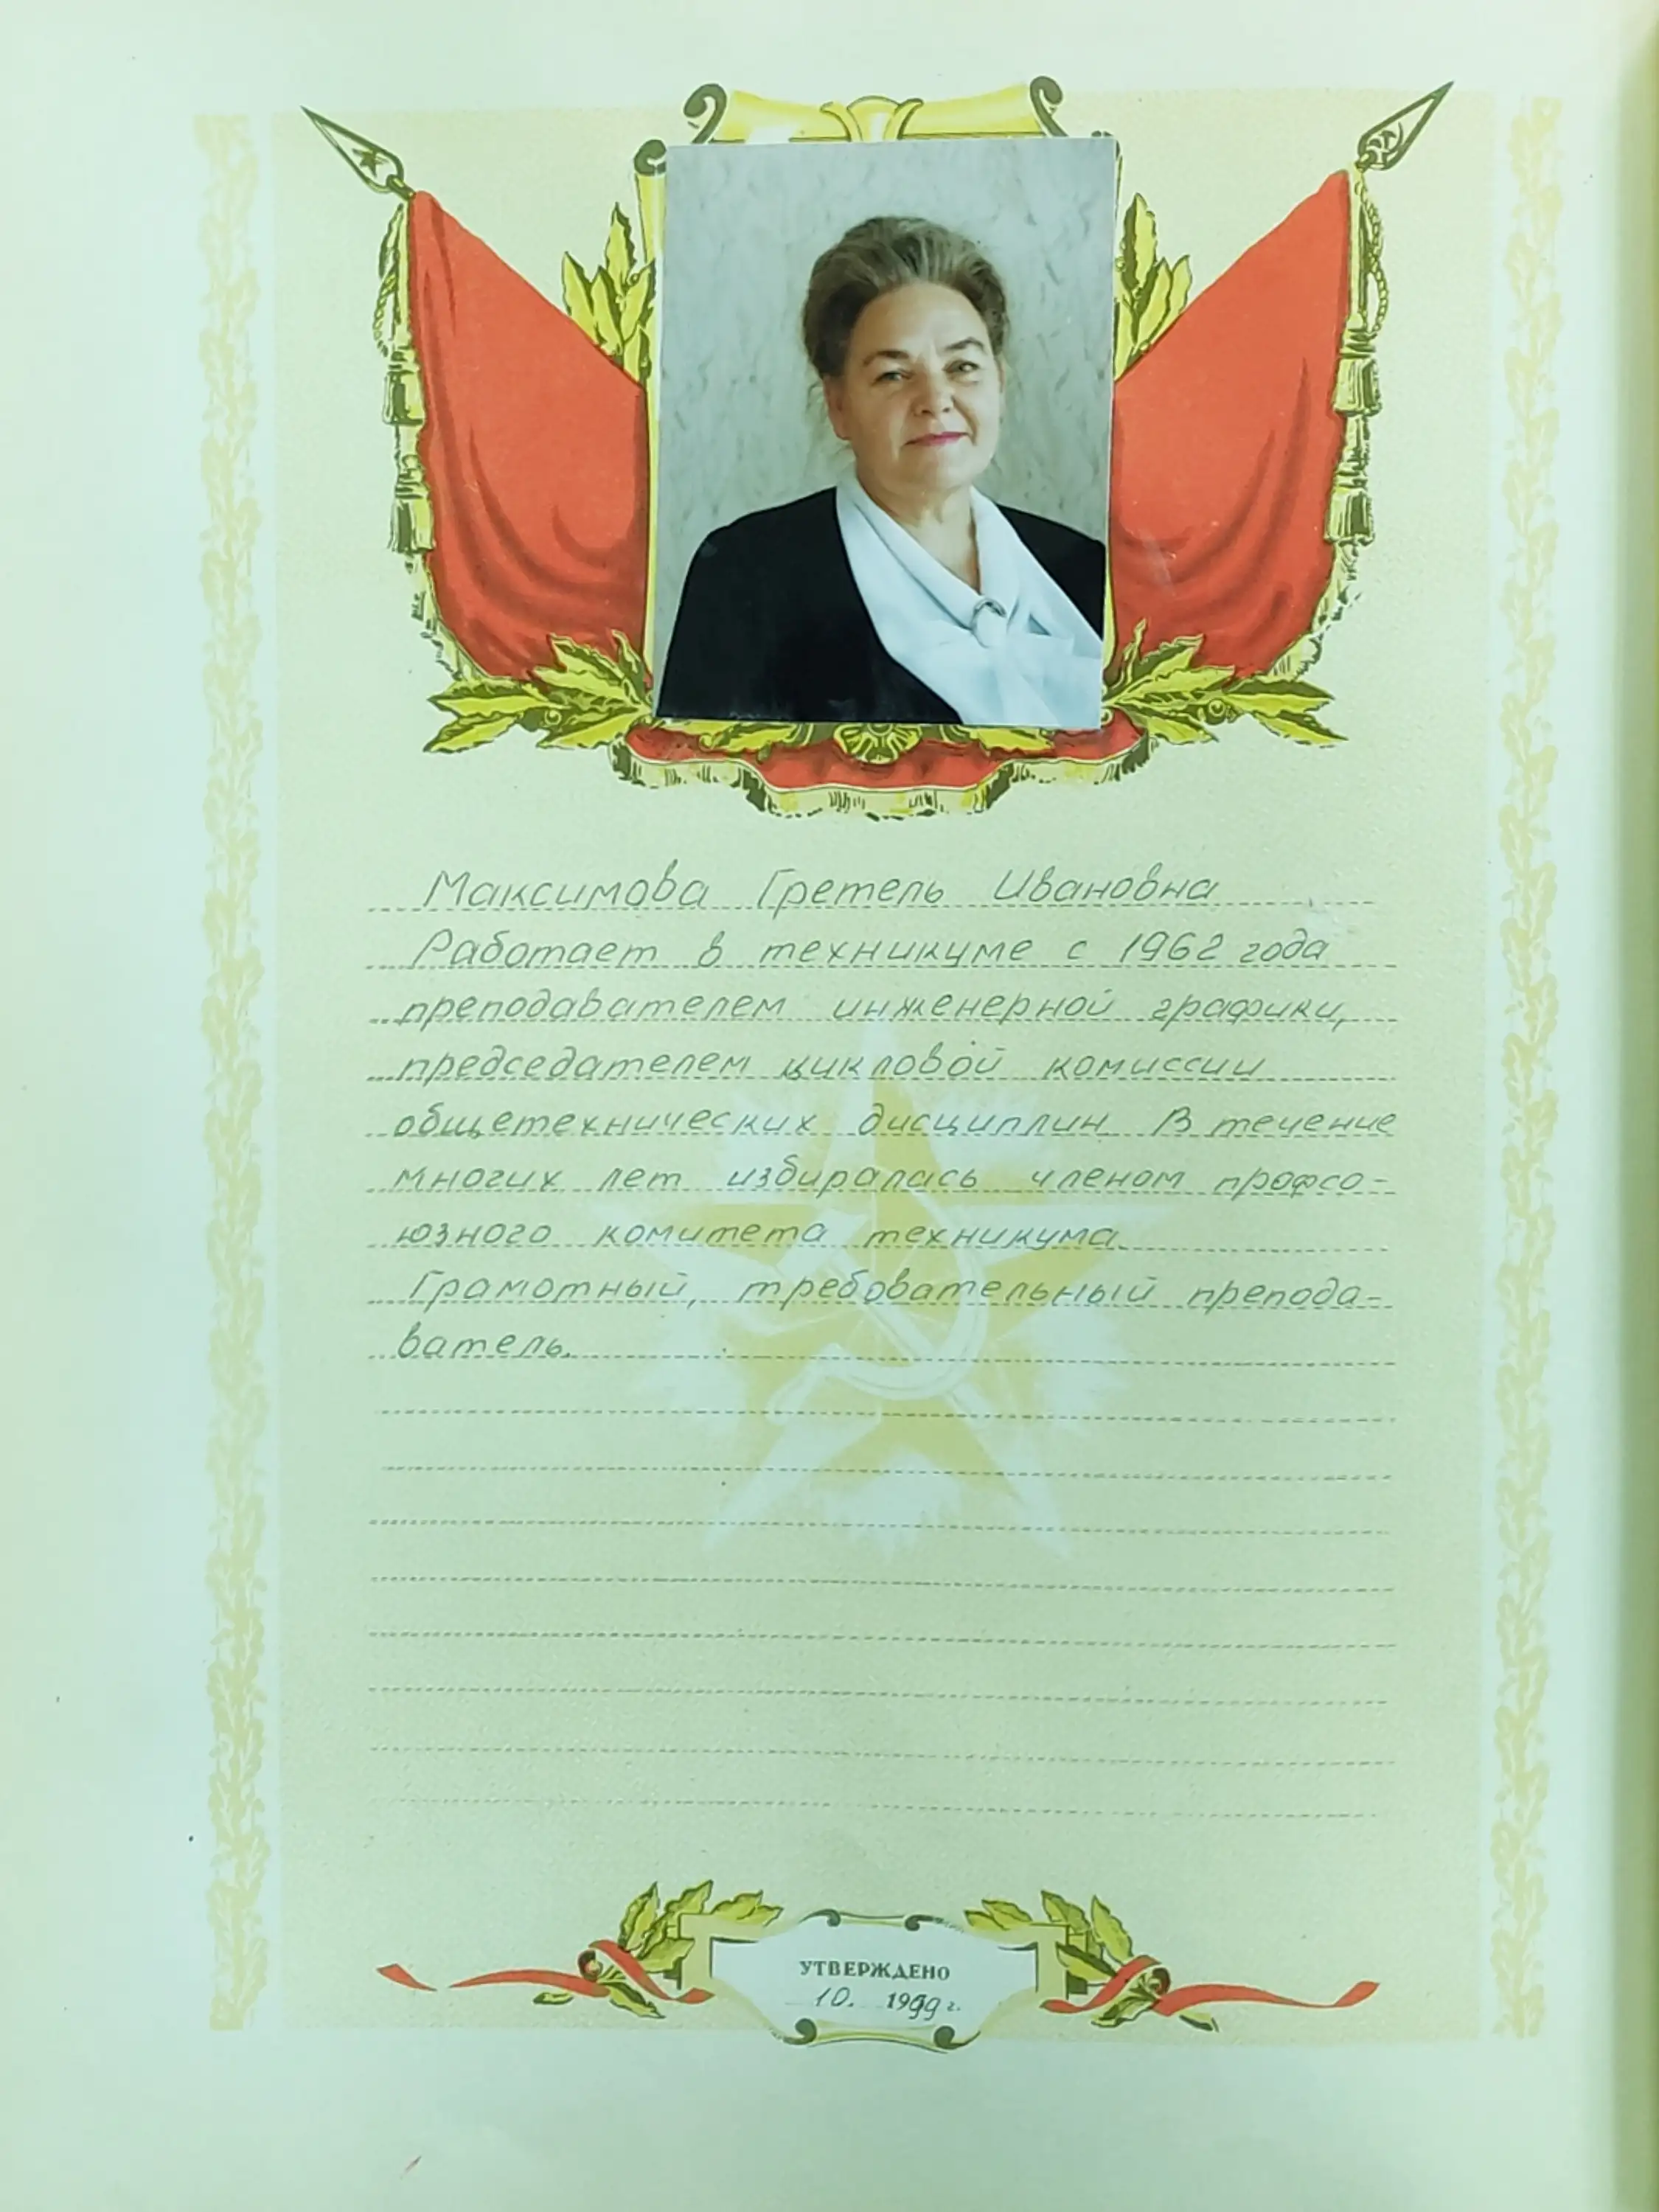 Максимова Гретель Ивановна
Работает в техникуме с 1962 года
преподавателем инженерной графики,
председателем цикловой комиссии
общетехнических дисциплин. В течение
многих лет избиралась членом профсо-
юзного комитета техникума.
Грамотный, требовательный препода-
ватель.
УТВЕРЖДЕНО
10. 1999 г.